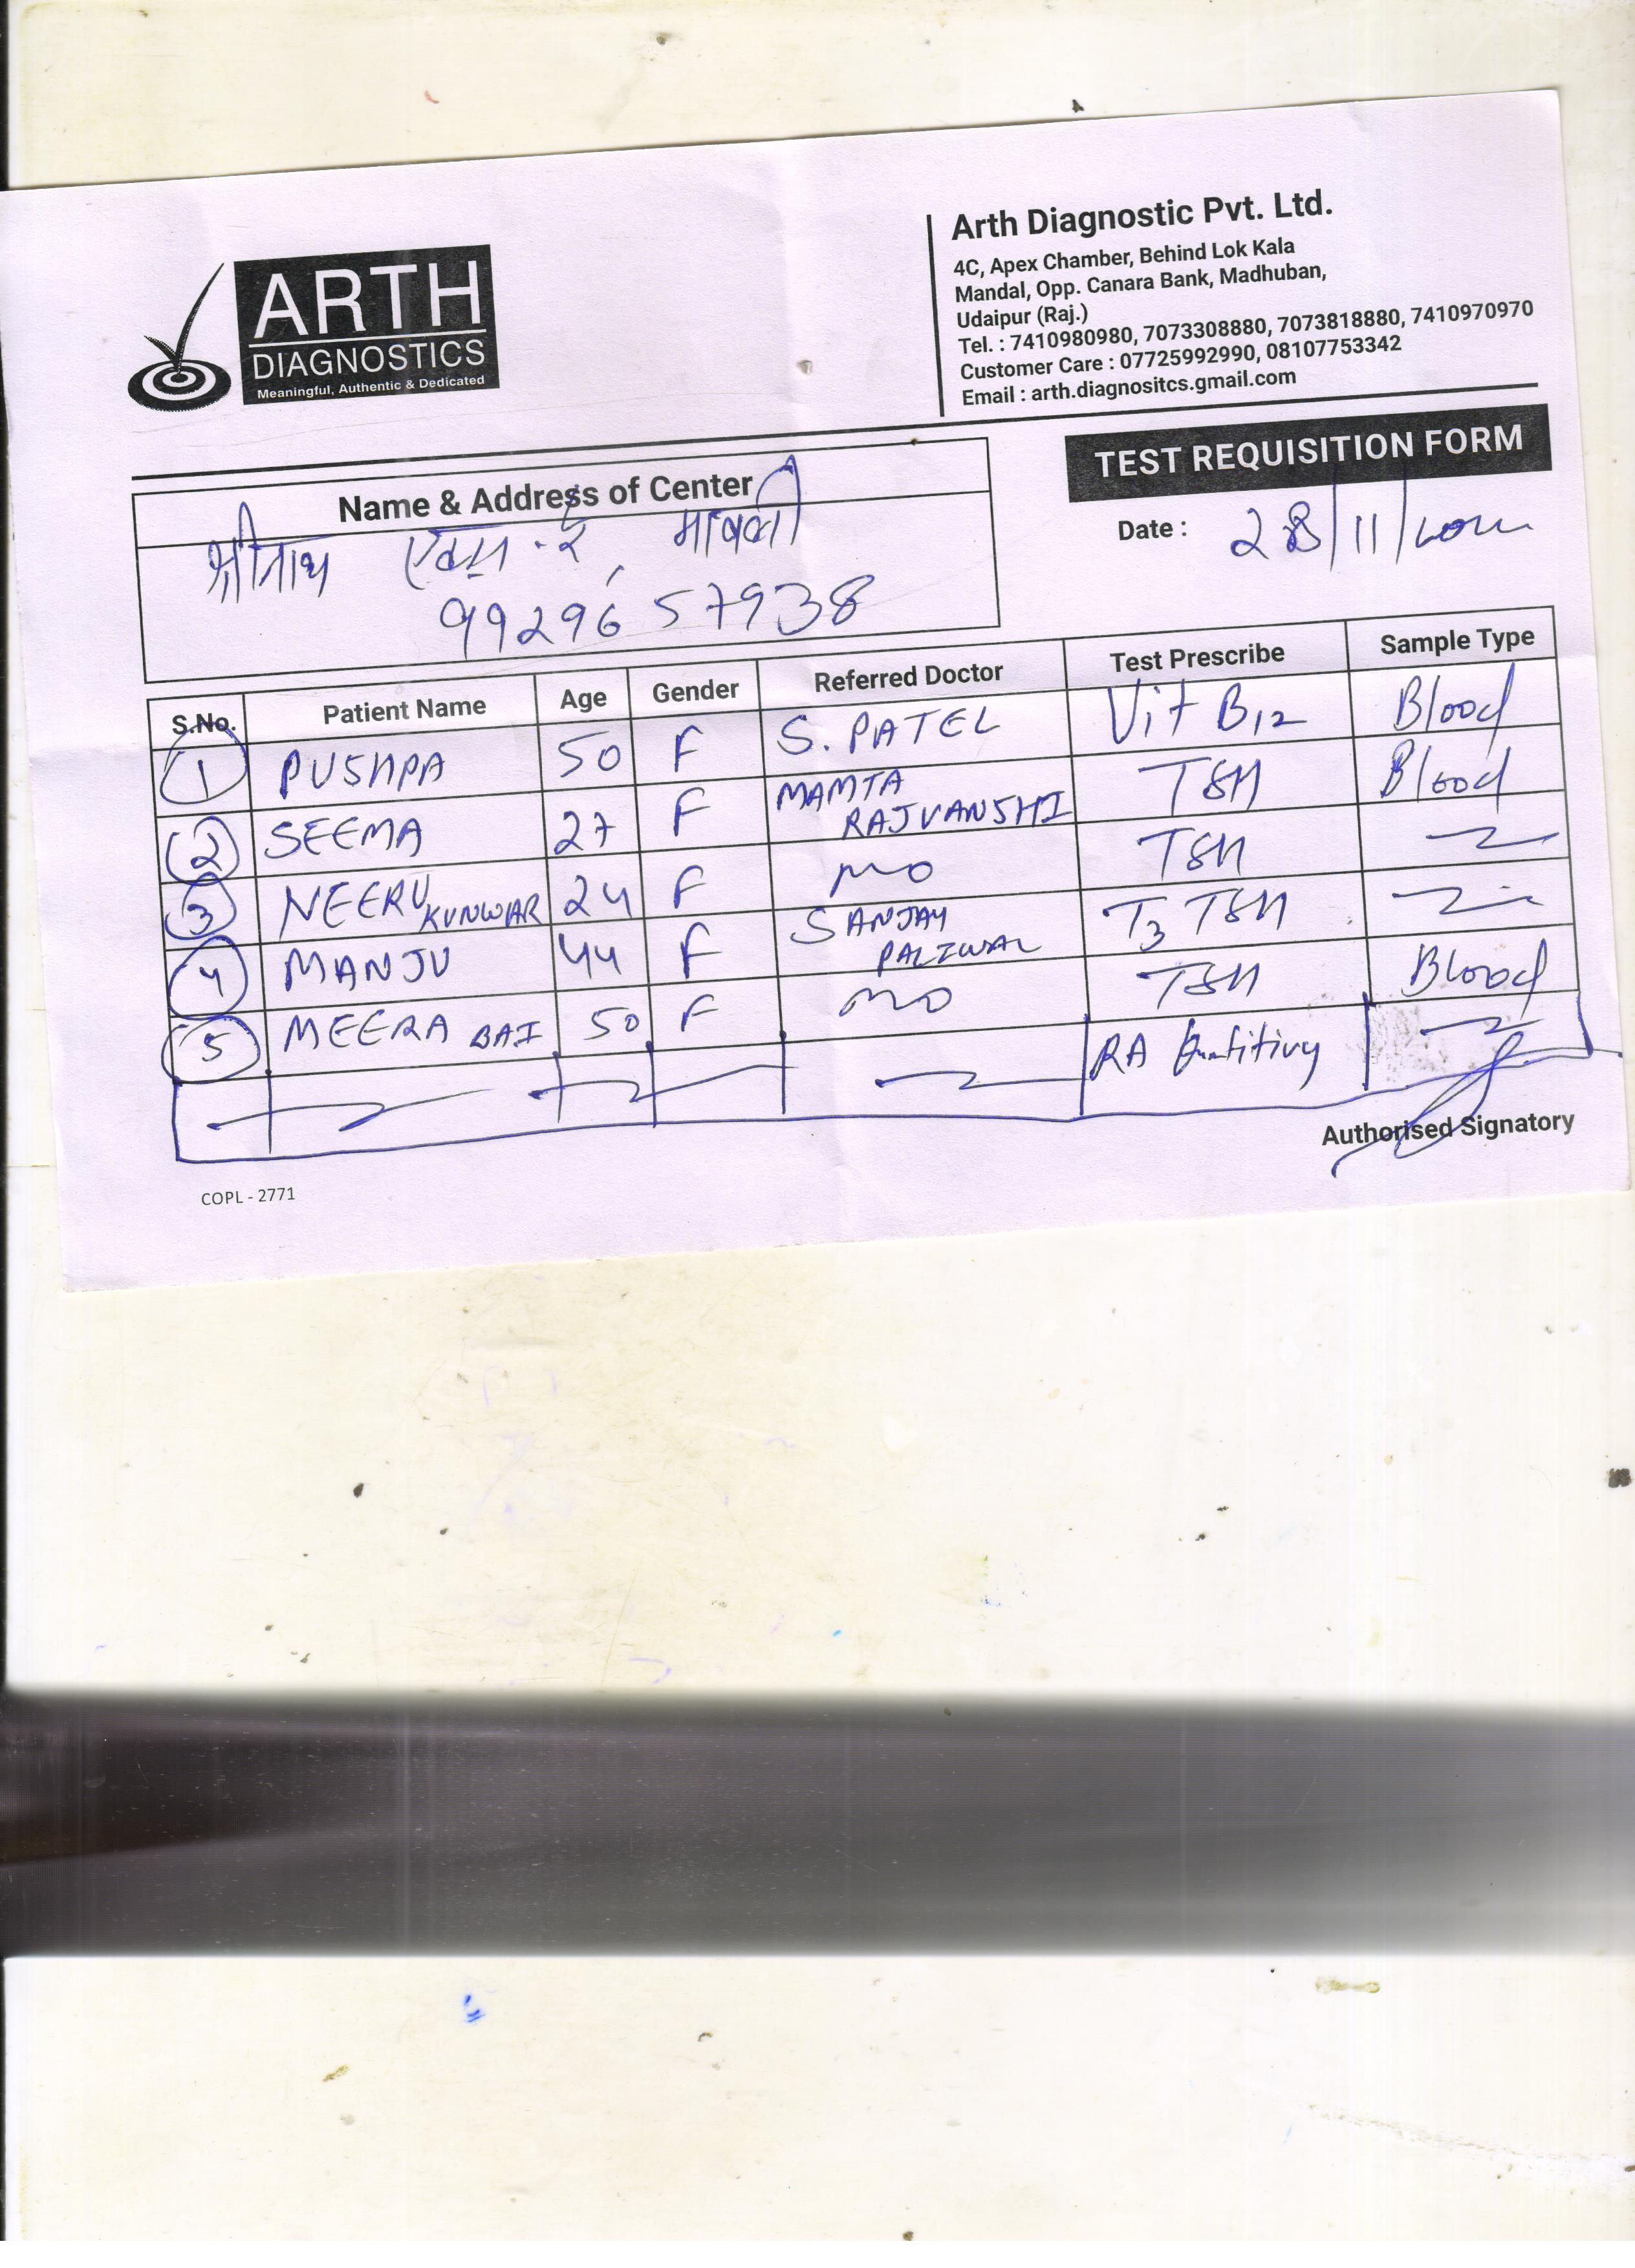 ARTH
DIAGNOSTICS
Meaningful, Authentic & Dedicated
Arth Diagnostic Pvt. Ltd.
4C, Apex Chamber, Behind Lok Kala
Mandal, Opp. Canara Bank, Madhuban,
Udaipur (Raj.)
Tel. : 7410980980, 7073308880, 7073818880, 7410970970
Customer Care : 07725992990, 08107753342
Email : arth.diagnositcs.gmail.com
TEST REQUISITION FORM
Name & Address of Center
श्रीनाथ
9929657938
Date : 28/11/
S.No. Patient Name Age Gender Referred Doctor Test Prescribe Sample Type
1 PUSHPA 50 F S. PATEL Vit B12 Blood
2 SEEMA 27 F MAMTA RAJVANSHI TSH Blood
3 NEERU KUNWAR 24 F MO TSH
4 MANJU 44 F SANJAY PALIWAL T3 TSH
5 MEERA BAI 50 F MO TSH Blood
RA
Authorised Signatory
COPL - 2771